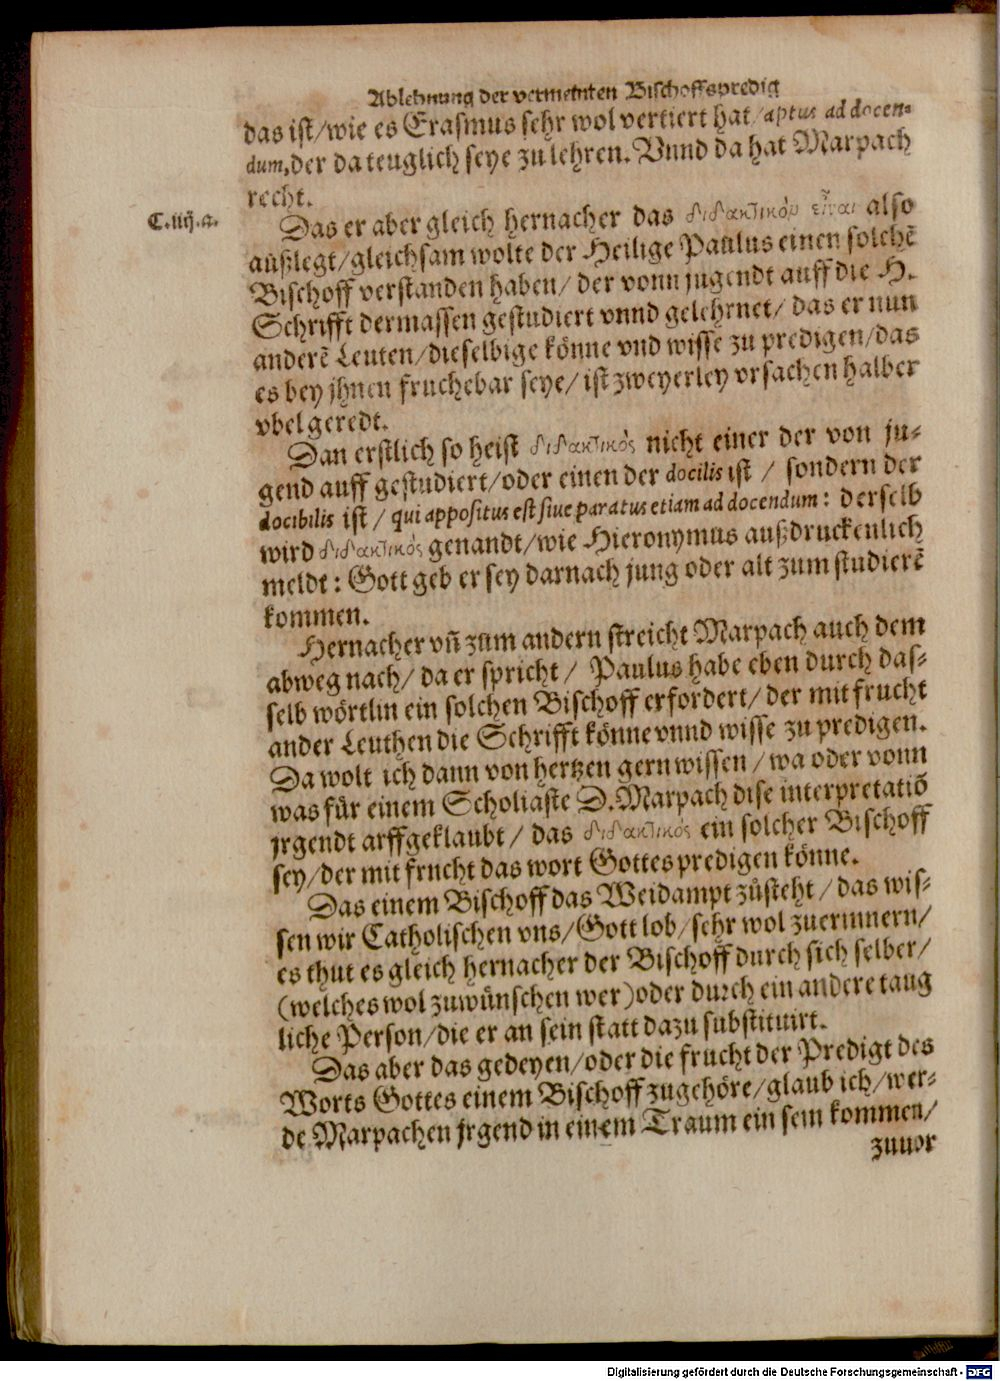 Ablehnung der vermeinten Bischoffspredig
das ist/wie es Erasmus sehr wol vertiert hat/aptus ad docen-
dum,der da teuglich seye zu lehren. Vnnd da hat Marpach
recht.
C.iiij.a.
Das er aber gleich hernacher das διδακτικὸν εἶναι also
außlegt/gleichsam wolte der Heilige Paulus einen solchẽ
Bischoff verstanden haben/ der vonn jugendt auff die H.
Schrifft dermassen gestudiert vnnd gelehrnet/ das er nun
anderẽ Leuten/dieselbige könne vnd wisse zu predigen/das
es bey jhnen fruchebar seye/ ist zweyerley vrsachen halber
vbel geredt.
Dan erstlich so heist διδακτικὸς nicht einer der von ju-
gend auff gestudiert/oder einen der docilis ist / sondern der
docibilis ist / qui appositus est siue paratus etiam ad docendum: derselb
wird διδακτικὸς genandt/wie Hieronymus außdruckenlich
meldt: Gott geb er sey darnach jung oder alt zum studierẽ
kommen.
Hernacher vñ zum andern streicht Marpach auch dem
abweg nach/ da er spricht / Paulus habe eben durch das-
selb wörtlin ein solchen Bischoff erfordert/ der mit frucht
ander Leuthen die Schrifft könne vnnd wisse zu predigen.
Da wolt ich dann von hertzen gern wissen / wa oder vonn
was für einem Scholiaste D.Marpach dise interpretatiõ
jrgendt arffgeklaubt / das διδακτικὸς ein solcher Bischoff
sey/der mit frncht das wort Gottes predigen könne.
Das einem Bischoff das Weidampt zůsteht / das wis-
sen wir Catholischen vns/Gott lob/sehr wol zuerinnern/
es thut es gleich hernacher der Bischoff durch sich selber/
(welches wol zuwünschen wer)oder durch ein andere taug
liche Person/die er an sein statt dazu substituirt.
Das aber das gedeyen/oder die frucht der Predigt des
Worts Gottes einem Bischoff zugehöre/glaub ich/wer-
de Marpachen jrgend in einem Traum ein sein kommen/
zuuor
Digitalisierung gefördert durch die Deutsche Forschungsgemeinschaft - DFG